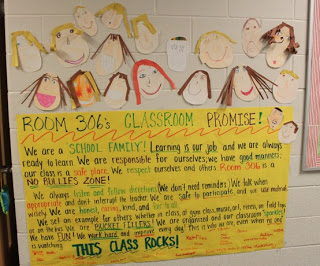 ROOM 306's CLASSROOM PROMISE!
We are a SCHOOL FAMILY! Learning is our job and we are always
ready to learn. We are responsible for ourselves; we have good manners;
our class is a safe place. We respect ourselves and others. Room 306 is a
NO BULLIES ZONE!
We always listen and follow directions (We don't need reminders.) We talk when
appropriate and don't interrupt the teacher. We are safe to participate, and use materials
wisely. We are honest, caring, kind, and fair to all.
We set an example for others whether in class, at gym class, music, art, recess, on field trips
or on the bus. We are BUCKET FILLERS! We are organized and our classroom "sparkles".
We have FUN! We work hard and improve every day. This is you we are, even when no one
is watching
THIS CLASS ROCKS!